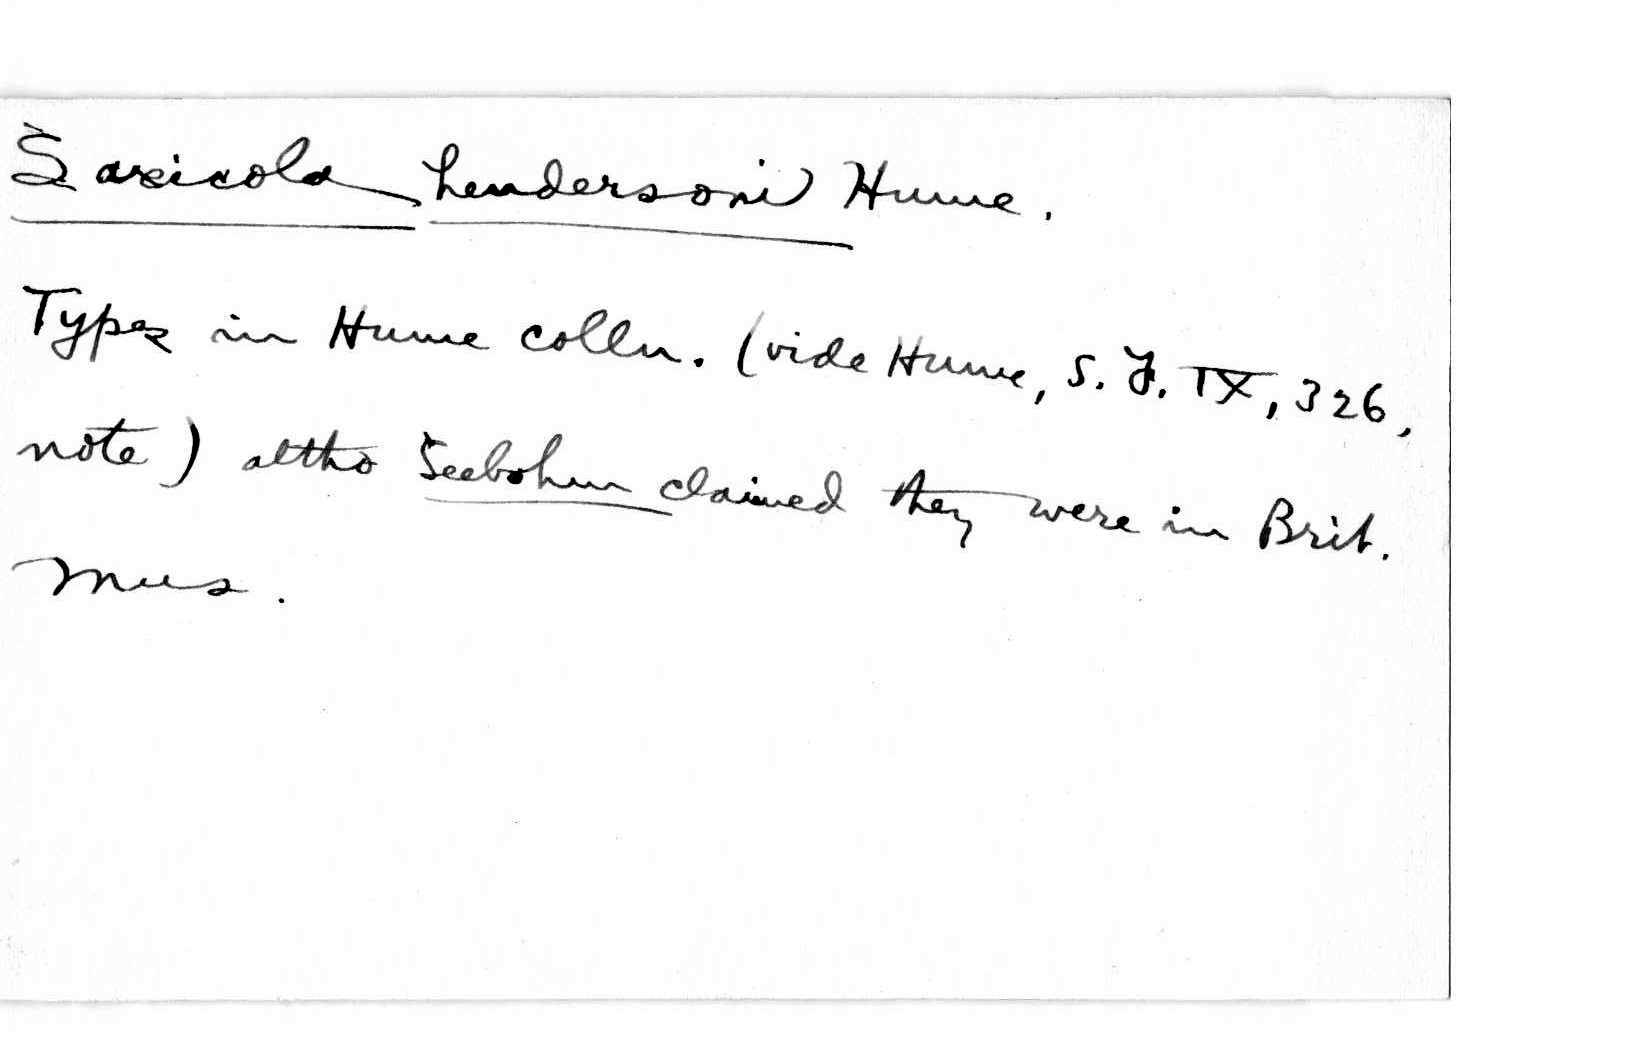 Saxicola hendersoni Hume.
Types in Hume colln. (vide Hume, S. F. IX, 326,
note) altho Seebohm claimed they were in Brit.
Mus.